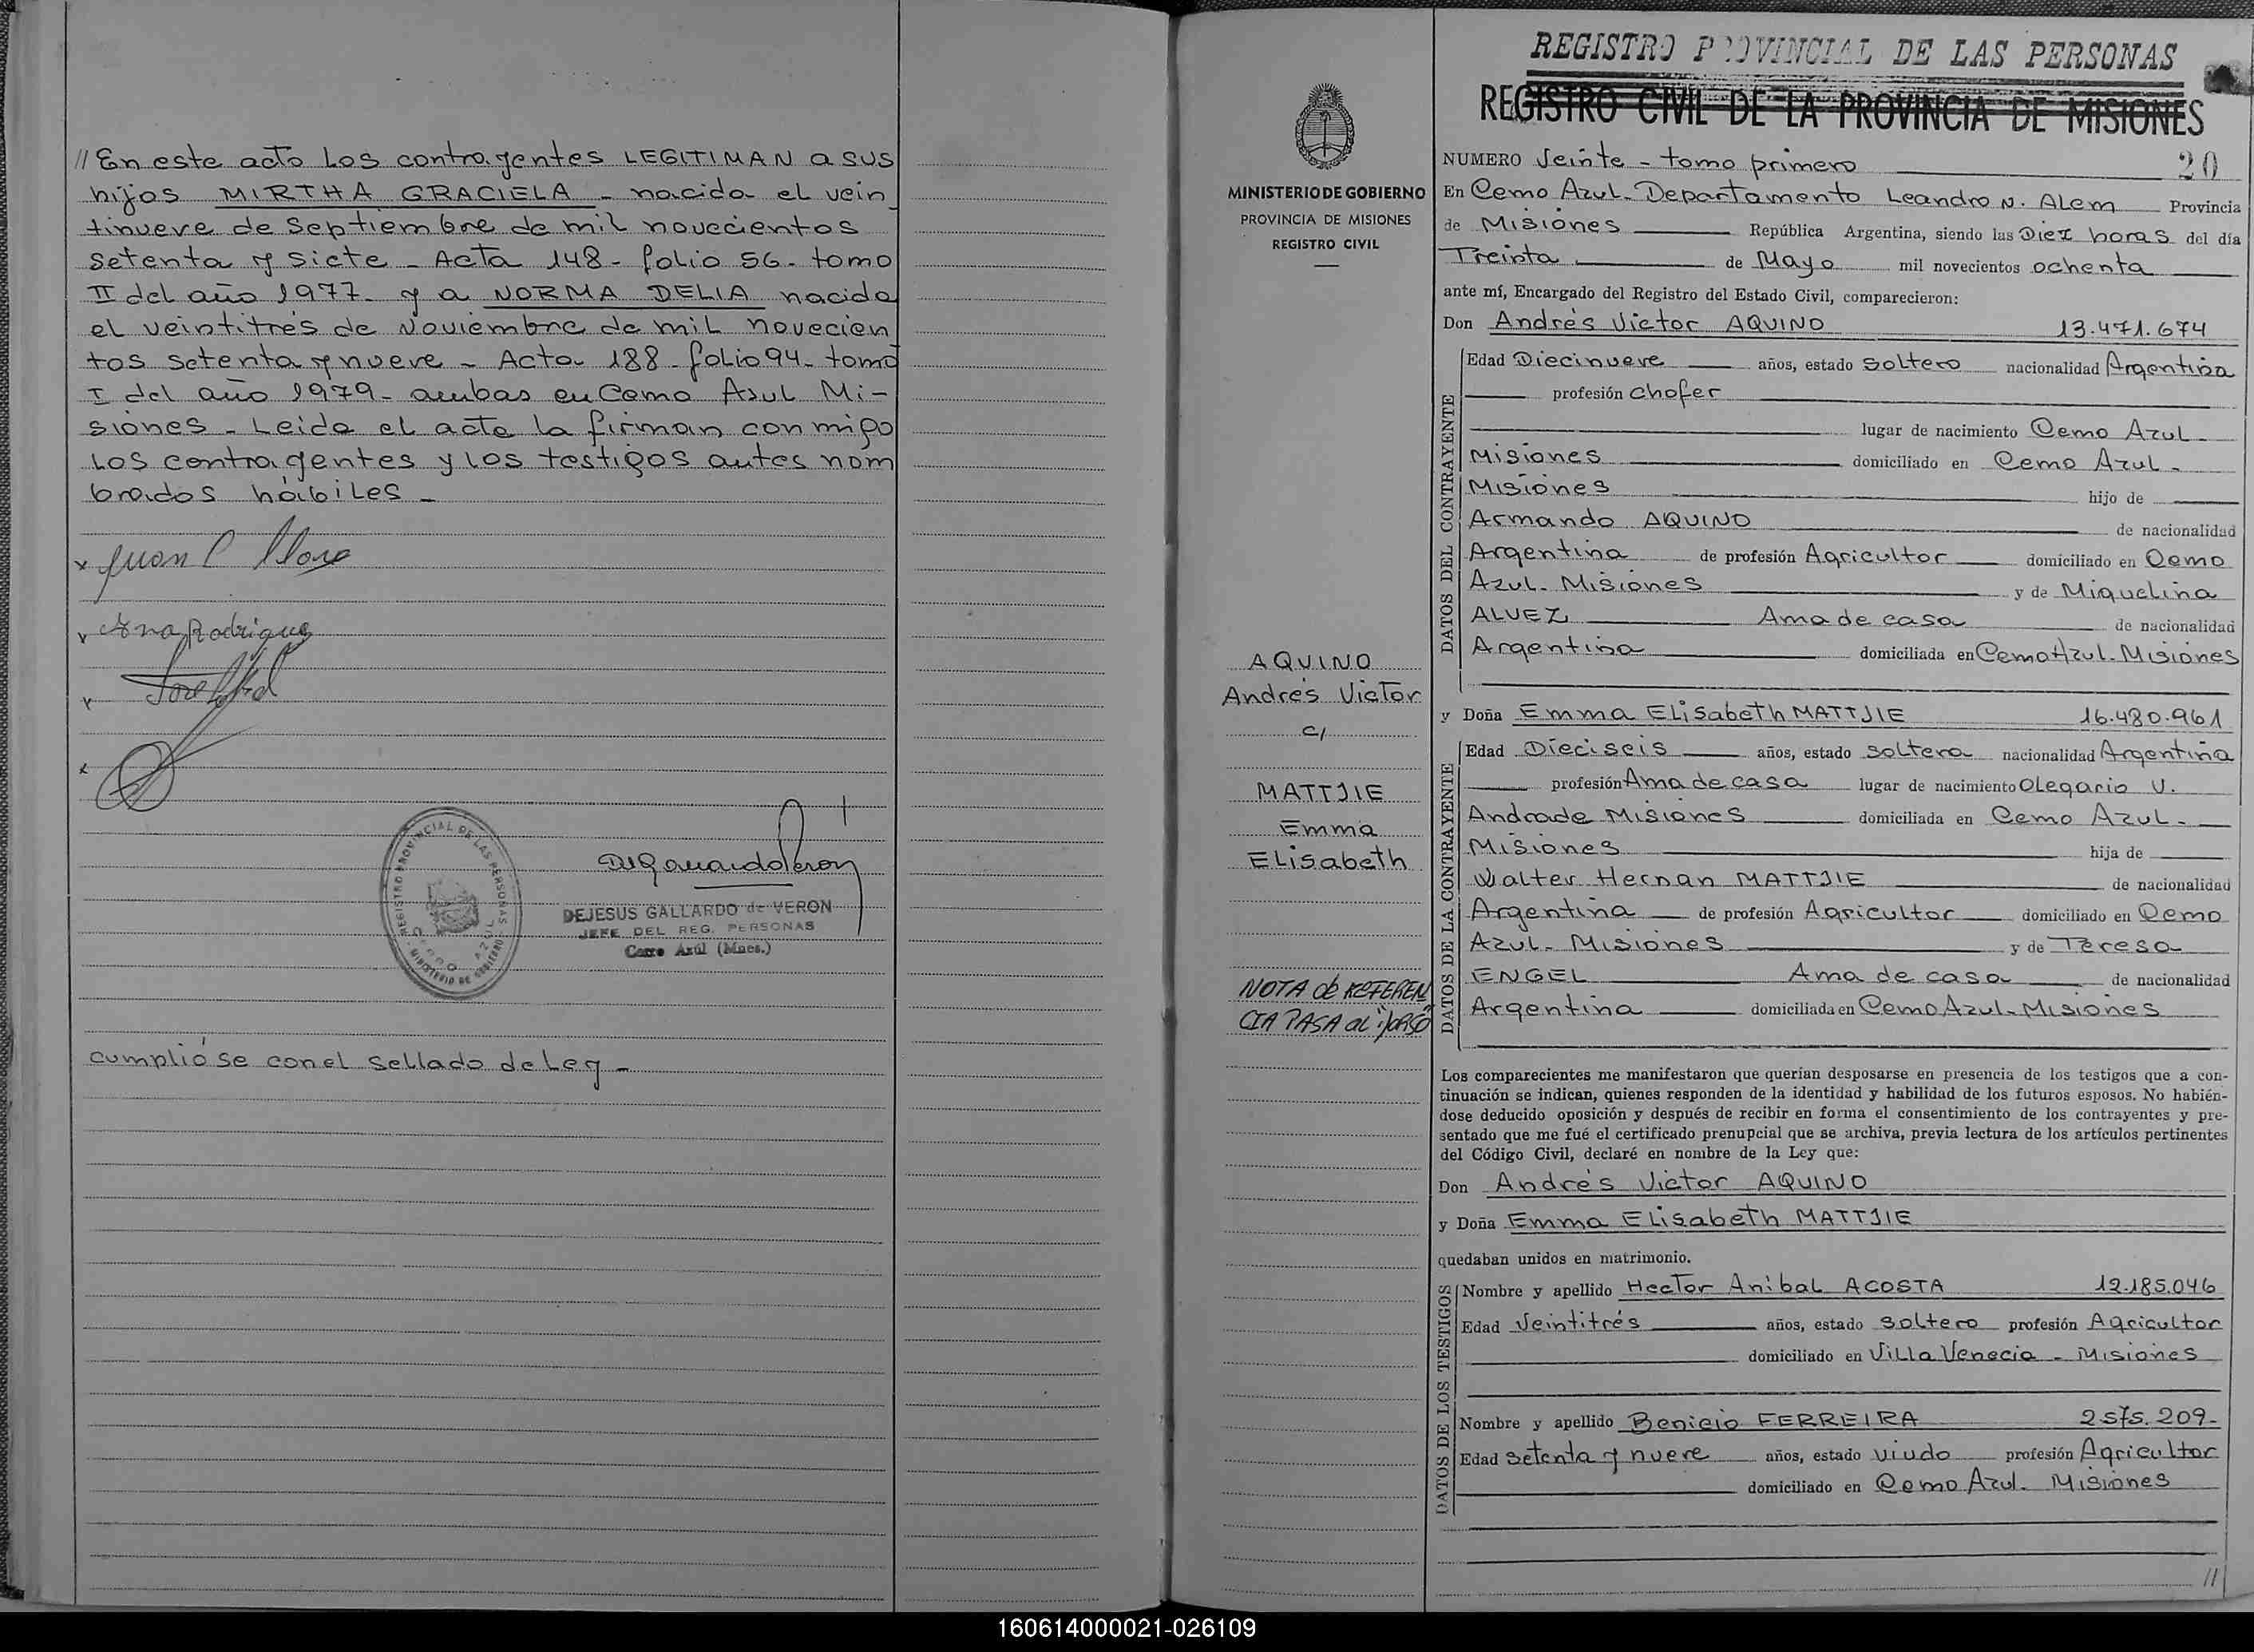 // En este acto los contrayentes LEGITIMAN a sus
hijos MIRTHA GRACIELA - nacida el vein
tinueve de Septiembre de mil novecientos
setenta y siete - Acta 148 - folio 56 - tomo
II del año 1977 - y a NORMA DELIA nacida
el veintitrés de Noviembre de mil novecien
tos setenta y nueve - Acta 188 - folio 94 - tomo
I del año 1979 - ambas en Cerro Azul Mi-
siones - Leida el acta la firman conmigo
los contrayentes y los testigos antes nom
brados hábiles -
x Juan C
Ana Rodriguez
REGISTRO PROVINCIAL DE LAS PERSONAS
MINISTERIO DE GOBIERNO
CERRO AZUL
DEJESUS GALLARDO de VERON
JEFE DEL REG. PERSONAS
Cerro Azúl (Mnes.)
cumplióse con el sellado de Ley -
MINISTERIO DE GOBIERNO
PROVINCIA DE MISIONES
REGISTRO CIVIL
AQUINO
Andrés Victor
c/
MATTJIE
Emma
Elisabeth
NOTA de REFEREN
CIA PASA al "Dorso"
REGISTRO PROVINCIAL DE LAS PERSONAS
REGISTRO CIVIL DE LA PROVINCIA DE MISIONES
NUMERO Veinte - tomo primero 20
En Cerro Azul - Departamento Leandro N. Alem Provincia
de Misiones República Argentina, siendo las Diez horas del día
Treinta de Mayo mil novecientos ochenta
ante mí, Encargado del Registro del Estado Civil, comparecieron:
Don Andrés Victor AQUINO 13.471.674
DATOS DEL CONTRAYENTE
Edad Diecinueve años, estado soltero nacionalidad Argentina
profesión chofer
lugar de nacimiento Cerro Azul -
Misiones domiciliado en Cerro Azul -
Misiones hijo de
Armando AQUINO de nacionalidad
Argentina de profesión Agricultor domiciliado en Cerro
Azul - Misiones y de Miquelina
ALVEZ Ama de casa de nacionalidad
Argentina domiciliada en Cerro Azul - Misiones
y Doña Emma Elisabeth MATTJIE 16.480.961
DATOS DE LA CONTRAYENTE
Edad Dieciseis años, estado soltera nacionalidad Argentina
profesión Ama de casa lugar de nacimiento Olegario V.
Andrade Misiones domiciliada en Cerro Azul -
Misiones hija de
Walter Hernan MATTJIE de nacionalidad
Argentina de profesión Agricultor domiciliado en Cerro
Azul - Misiones y de Teresa
ENGEL Ama de casa de nacionalidad
Argentina domiciliada en Cerro Azul - Misiones
Los comparecientes me manifestaron que querían desposarse en presencia de los testigos que a con-
tinuación se indican, quienes responden de la identidad y habilidad de los futuros esposos. No habién-
dose deducido oposición y después de recibir en forma el consentimiento de los contrayentes y pre-
sentado que me fué el certificado prenupcial que se archiva, previa lectura de los artículos pertinentes
del Código Civil, declaré en nombre de la Ley que:
Don Andrés Victor AQUINO
y Doña Emma Elisabeth MATTJIE
quedaban unidos en matrimonio.
DATOS DE LOS TESTIGOS
Nombre y apellido Hector Anibal ACOSTA 12.185.046
Edad Veintitrés años, estado soltero profesión Agricultor
domiciliado en Villa Venecia - Misiones
Nombre y apellido Benicio FERREIRA 2.575.209 -
Edad setenta y nueve años, estado viudo profesión Agricultor
domiciliado en Cerro Azul - Misiones
//
160614000021-026109